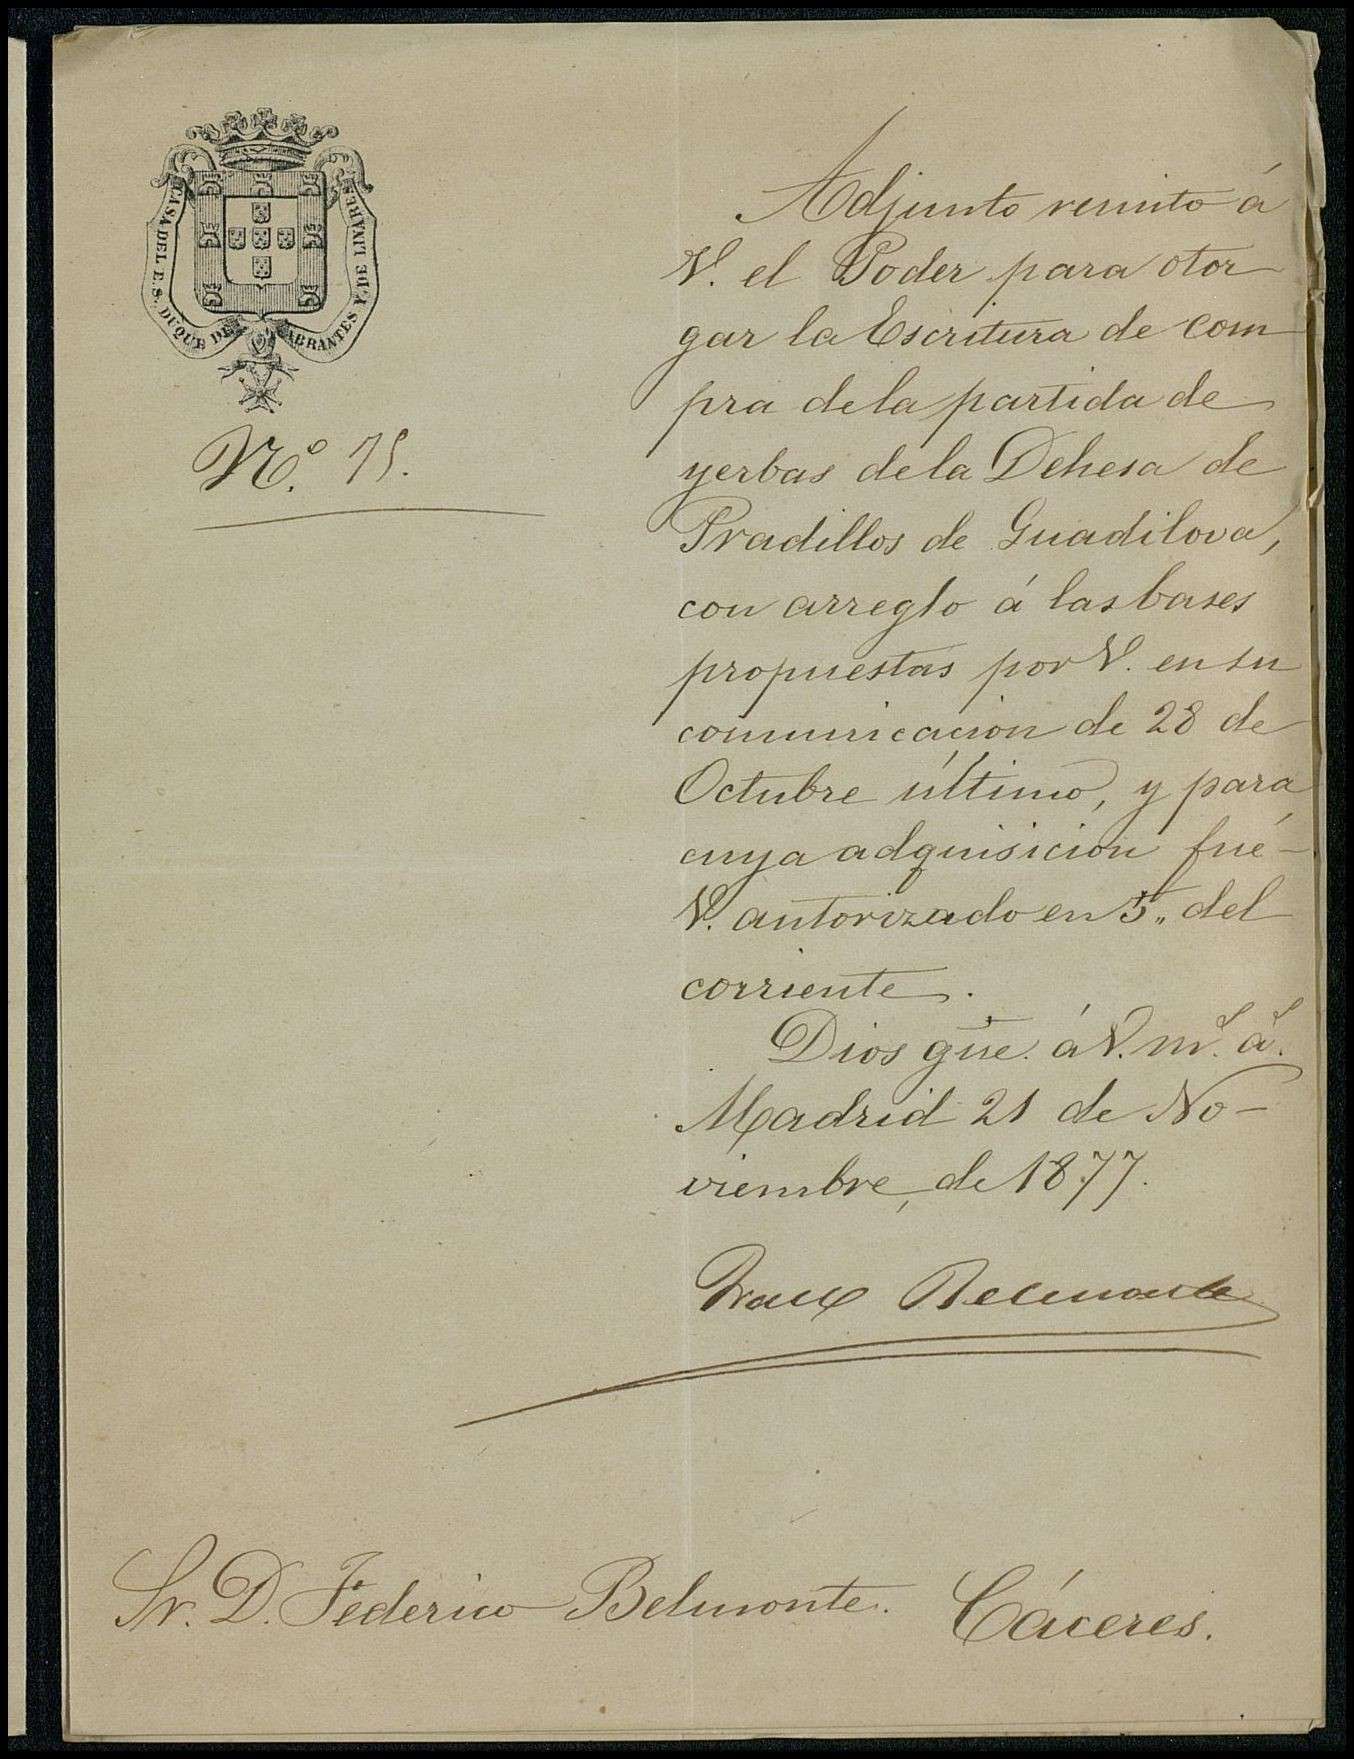 CASA DEL E.S. DUQUE DE ABRANTES Y DE LINARES
N.º 75.
Adjunto remito á
V. el Poder para otor
gar la Escritura de com
pra de la partida de
yerbas de la Dehesa de
Pradillos de Guadilova,
con arreglo á las bases
propuestas por V. en su
comunicacion de 28 de
Octubre último, y para
cuya adquisicion fué
V. autorizado en 5,, del
corriente.
Dios gūe. á V. m.ˢ á.ˢ
Madrid 21 de No-
viembre de 1877.
Belmonte
Sr. D. Federico Belmonte. Cáceres.